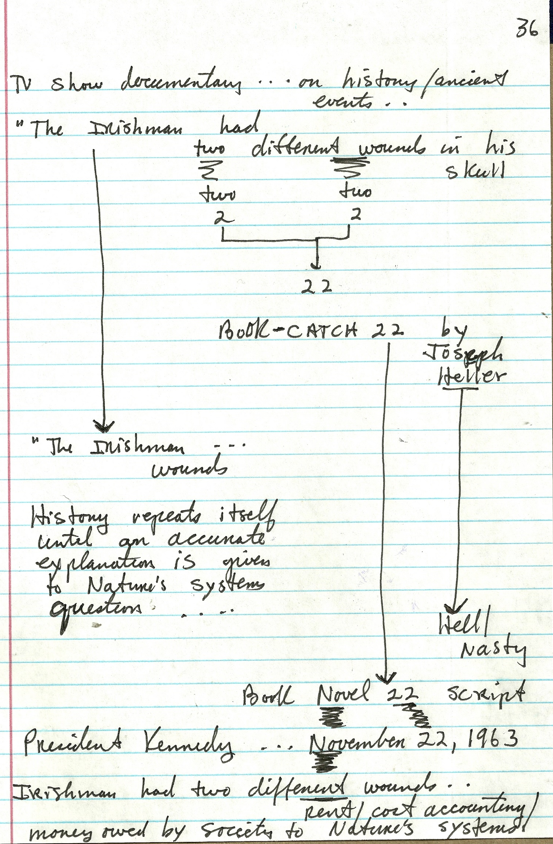 36
TV show documentary ... on history/ancient
events..
"The Irishman had
two different wounds in his
skull
two two
2 2
22
BOOK-CATCH 22 by
Joseph
Heller
"The Irishman ---
wounds
History repeats itself
until an accurate
explanation is given
to Nature's systems
question . . . .
Hell/
Nasty
Book Novel 22 script
President Kennedy ... November 22, 1963
Irishman had two different wounds..
rent/cost accounting/
money owed by society to Nature's systems